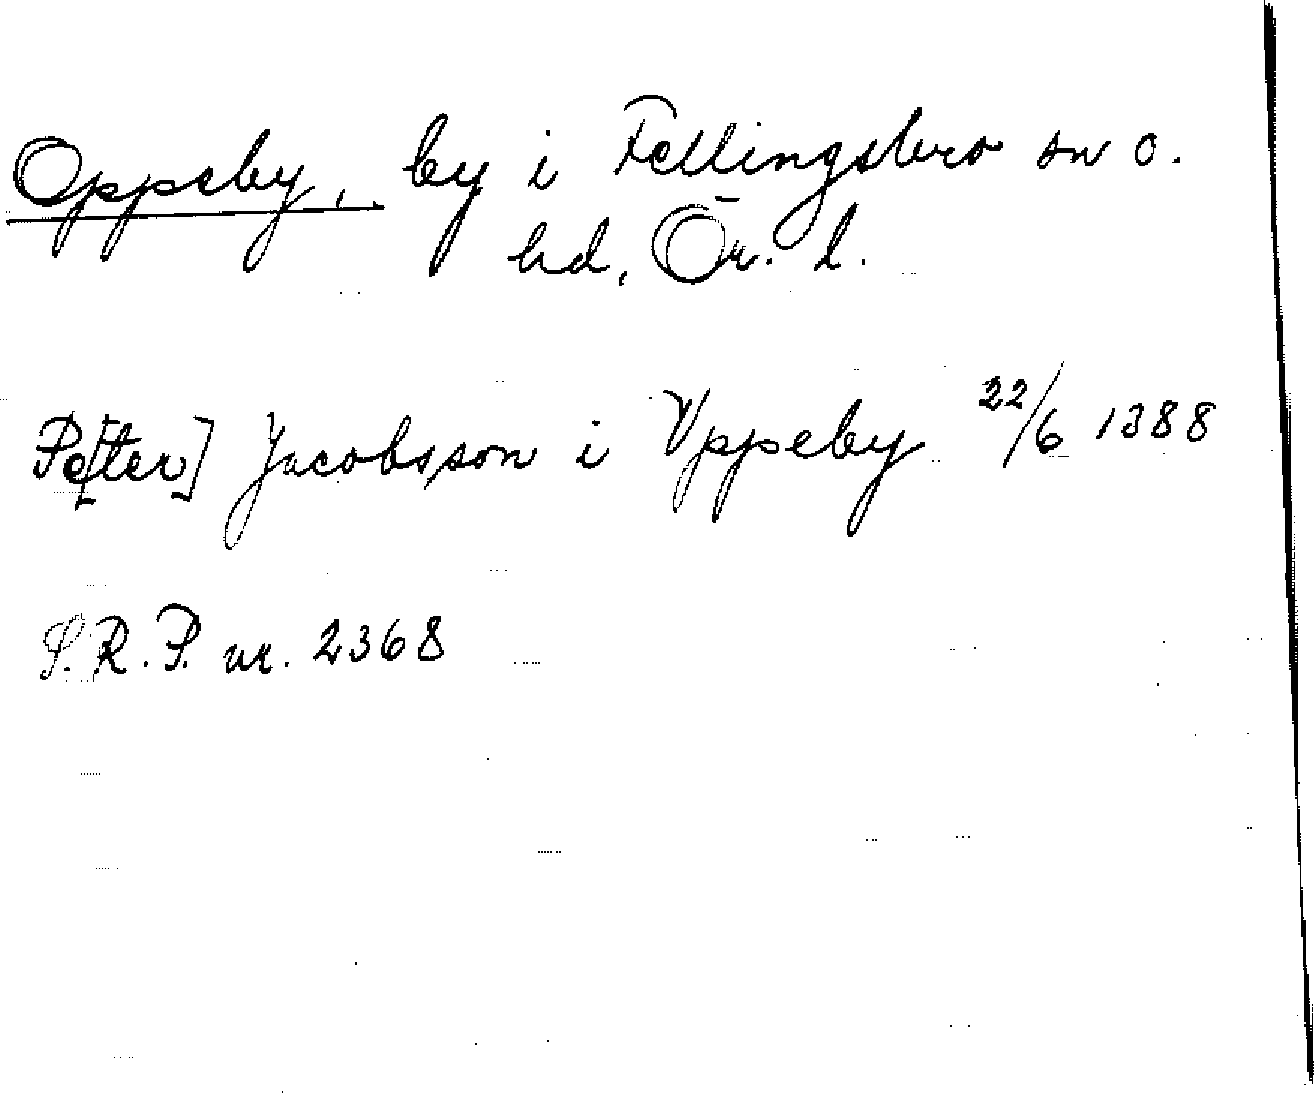 Oppeby, by i Fellingsbro sn o.
hd, Ör. l.
Pe[ter] Jacobsson i Vppeby 22/6 1388
S.R.P. nr. 2368